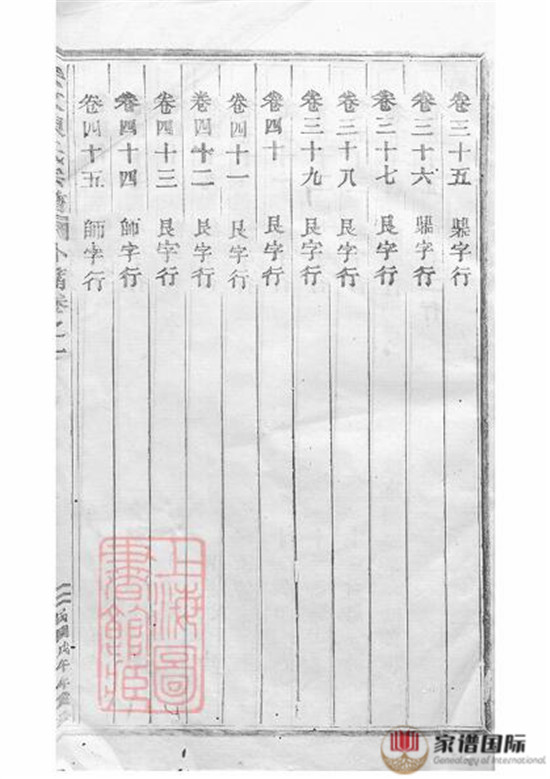 卷三十五 鼎字行
卷三十六 鼎字行
卷三十七 艮字行
卷三十八 艮字行
卷三十九 艮字行
卷四十 艮字行
卷四十一 艮字行
卷四十二 艮字行
卷四十三 艮字行
卷四十四 師字行
卷四十五 師字行
卷之一
上海圖書館藏
家谱国际
Genealogy of International